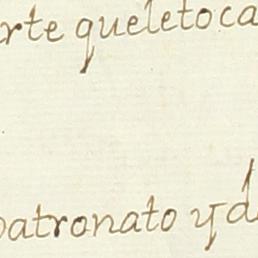 arte queletoca
patronato y d